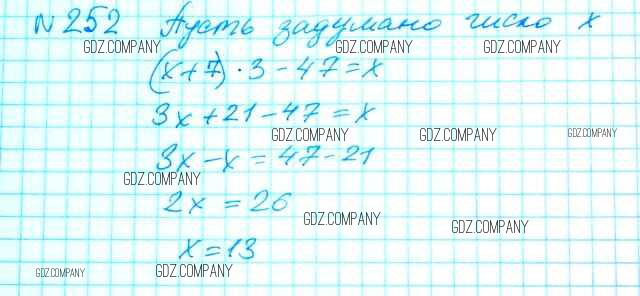 N 252 Пусть задумано число x
GDZ.COMPANY GDZ.COMPANY GDZ.COMPANY
(x+7)·3-47=x
3x+21-47=x
GDZ.COMPANY GDZ.COMPANY GDZ.COMPANY
3x-x=47-21
GDZ.COMPANY
2x=26
GDZ.COMPANY GDZ.COMPANY
x=13
GDZ.COMPANY GDZ.COMPANY